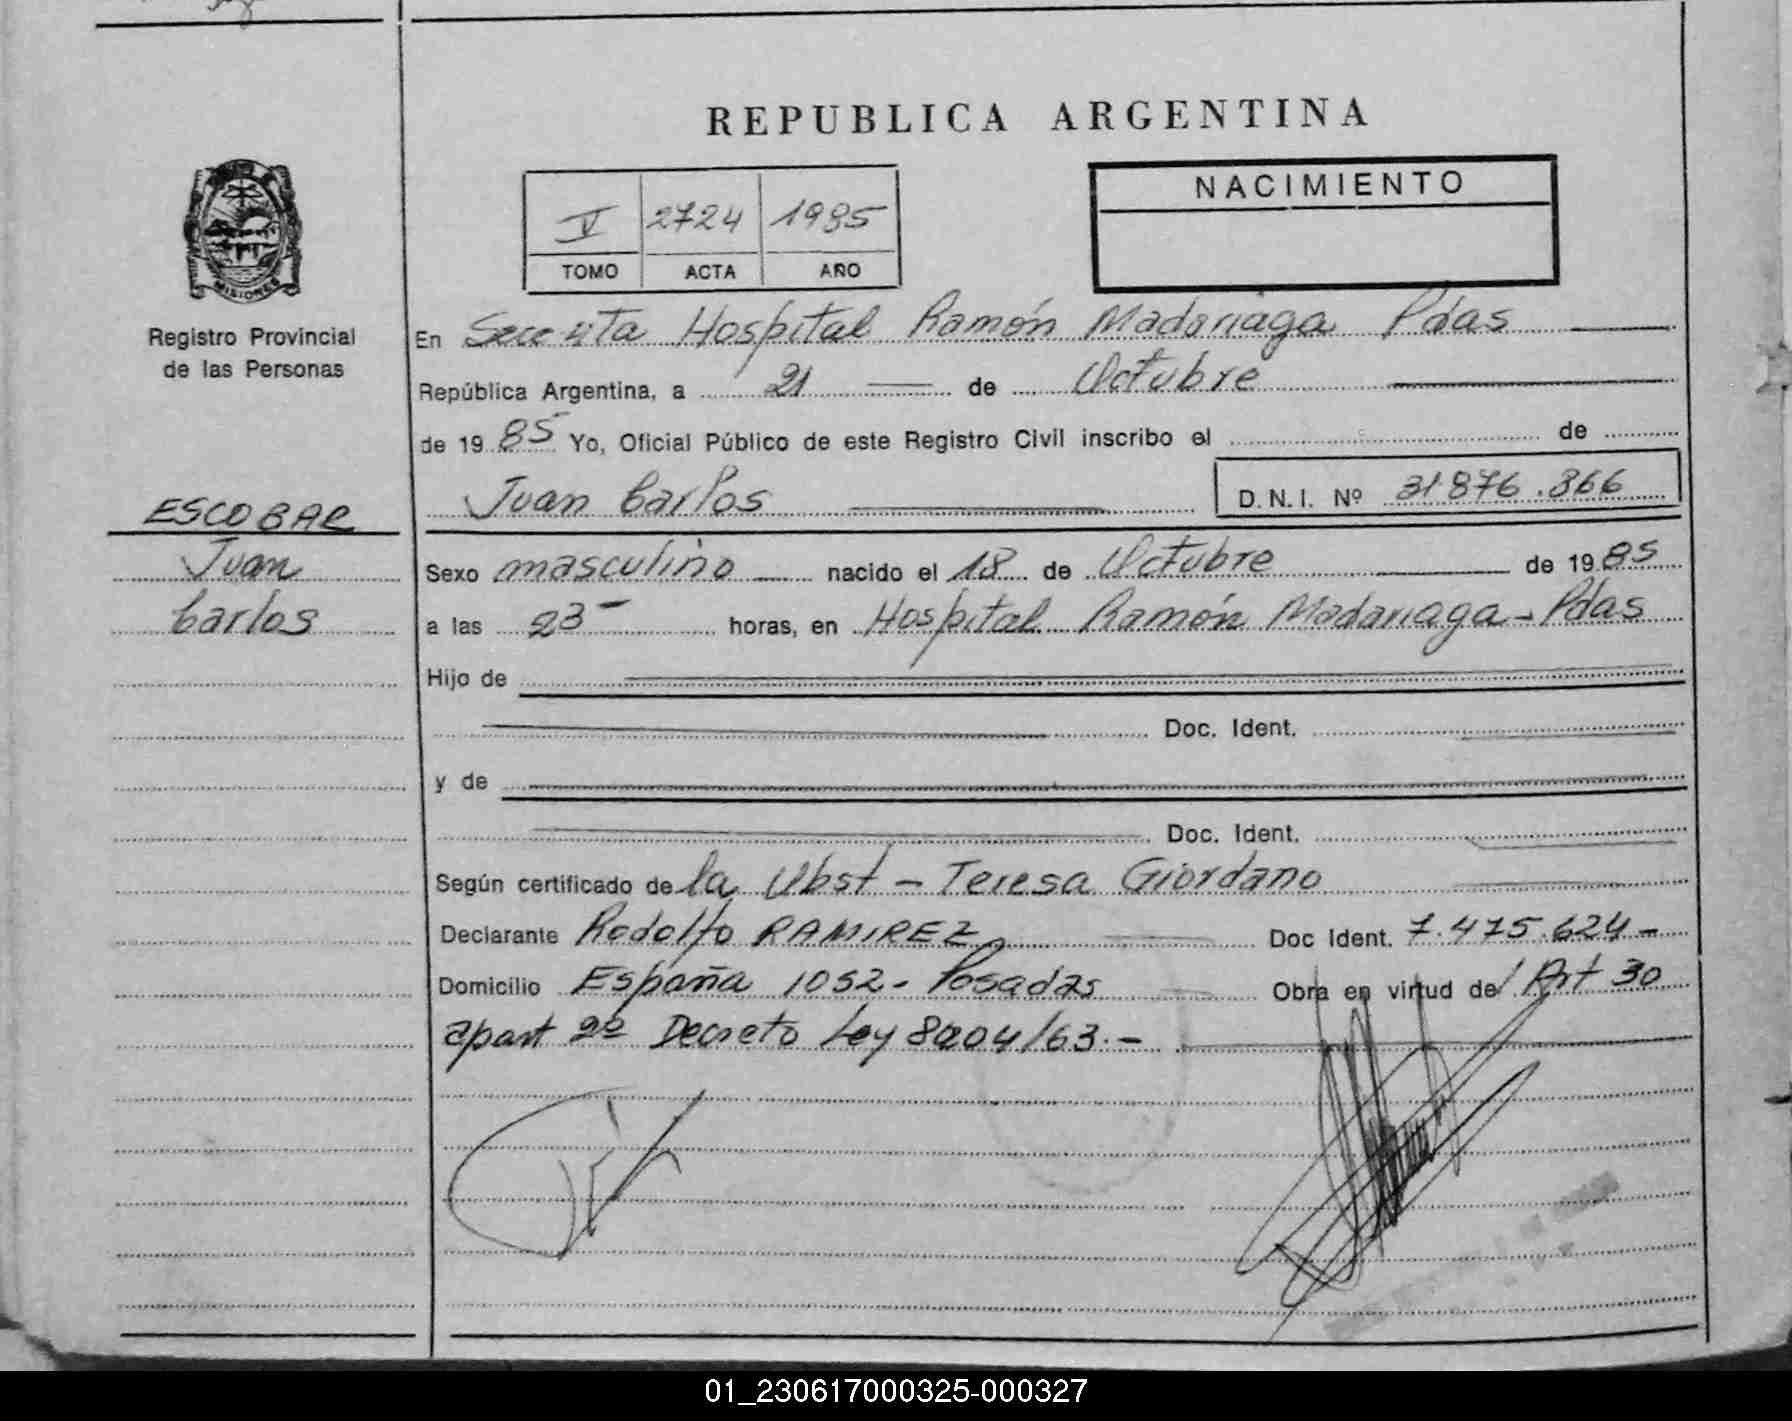 REPUBLICA ARGENTINA
NACIMIENTO
V 2724 1985
TOMO ACTA AÑO
MISIONES
Registro Provincial
de las Personas
En Hospital Ramón Madariaga Pdas
República Argentina, a 21 de Octubre
de 1985 Yo, Oficial Público de este Registro Civil inscribo el de
Juan Carlos D.N.I. Nº 31.876.366
ESCOBAR
Juan
Carlos
Sexo masculino nacido el 18 de Octubre de 1985
a las 23- horas, en Hospital Ramón Madariaga - Pdas
Hijo de
Doc. Ident.
y de
Doc. Ident.
Según certificado de la Obst - Teresa Giordano
Declarante Rodolfo RAMIREZ Doc Ident. 7.475.624-
Domicilio España 1052- Posadas Obra en virtud de Art 30
apart 2º Decreto Ley 8204/63.-
01_230617000325-000327